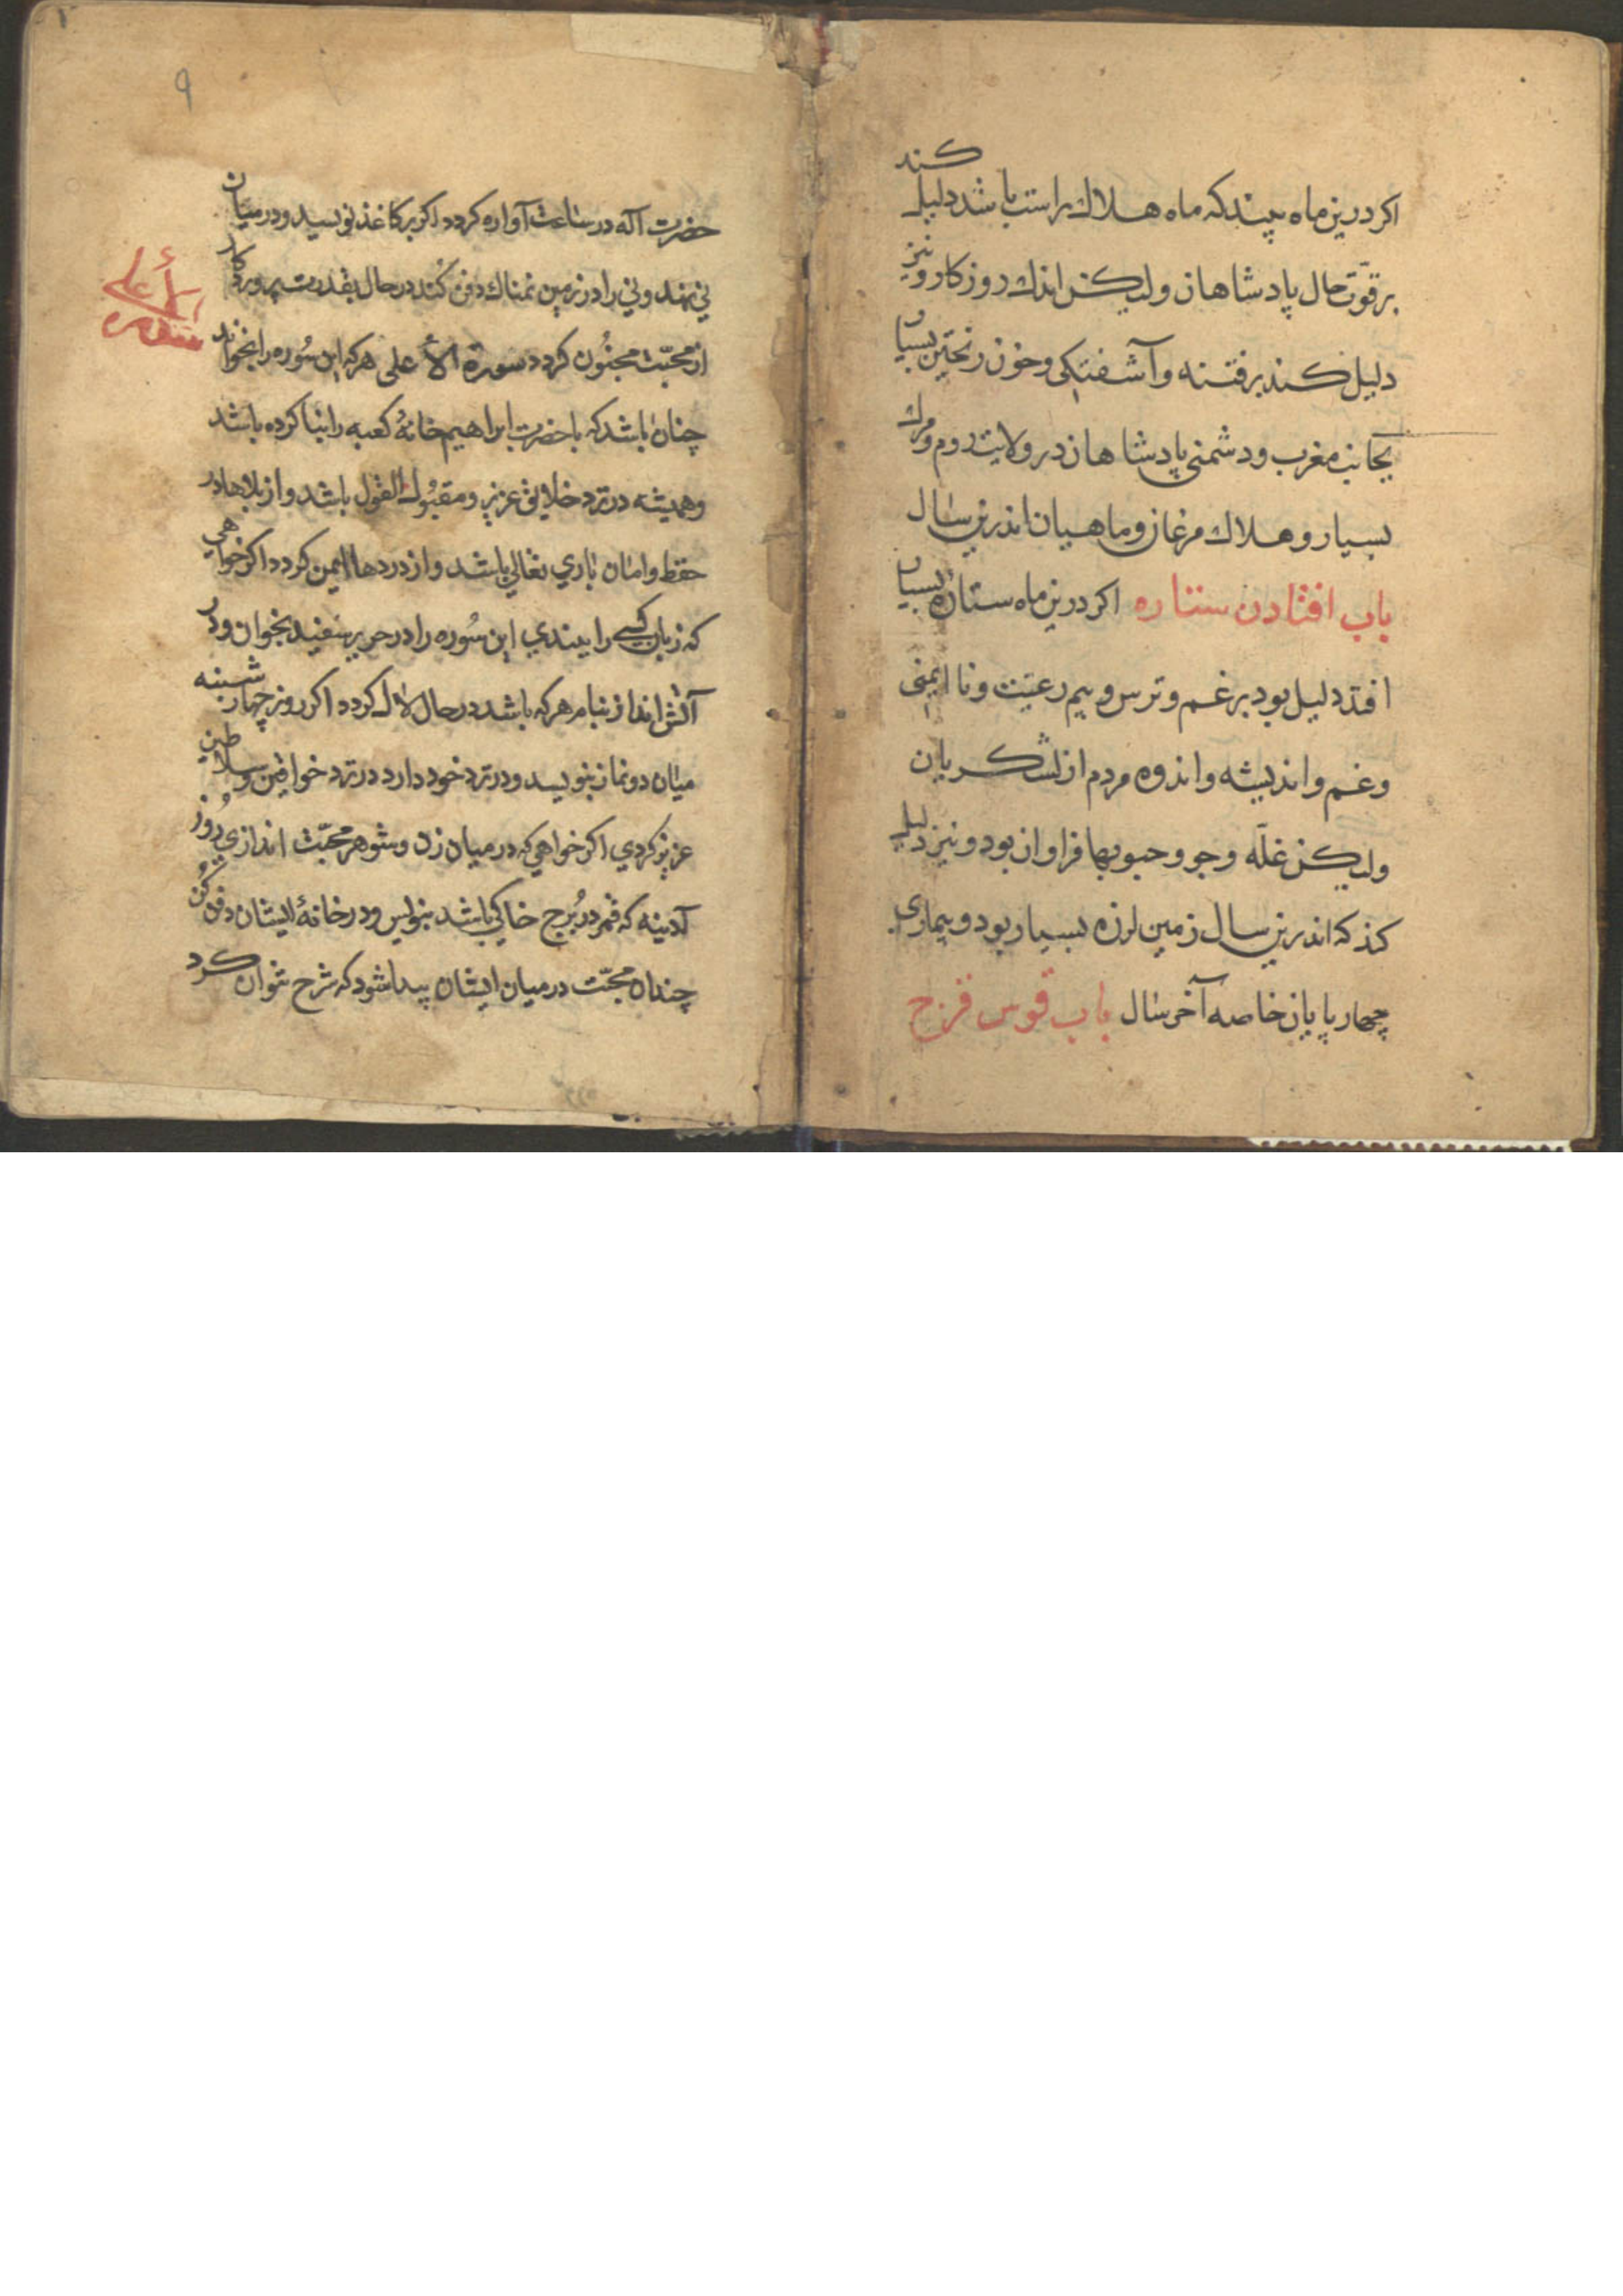 اکر درین ماه بیند که ماه هلاک راست باشد دلیل کند
بر قوّت حال پادشاهان ولیکن اندك روزکار و نیز
دلیل کند بر فتنه وآشفتکی وخون ریختن بسیار
بجانب مغرب ودشمنی پادشاهان در ولایت روم ومرك
بسیار وهلاك مرغان وماهیان اندرین سال
باب افتادن ستاره اکر درین ماه ستاره بسیار
افتد دلیل بود بر غم وترس وبیم رعیّت ونا ایمنی
وغم واندیشه واندوه مردم از لشکریان
ولیکن غلّه وجو وحبوبها فراوان بود ونیز دلیل
کند که اندرین سال زمین لرزه بسیار بود وبیماری
چهارپایان خاصه آخر سال باب قوس قزح
۹
حضرت آله در ساعت آواره کردد اکر بر کاغذ نویسد ودر میان
نی نهد ونی را در زمین نمناك دفن کند در حال بقدرت پروردکار
از محبّت مجنُون کردد سورة الأعلی هرکه این سُوره را بخواند
چنان باشد که با حضرت ابراهیم خانهٔ کعبه را بنا کرده باشد
وهمیشه در نزد خلایق عزیز ومقبُول القول باشد واز بلاها در
حفظ وامان باری تعالی باشد واز دردها ایمن کردد اکر خواهی
که زبان کسی را ببندی این سُوره را در حریر سفید بخوان ودر
آتش انداز بنام هرکه باشد در حال لال کردد اکر روز چهار شنبه
میان دو نماز بنویسد ودر نزد خود دارد در نزد خواقین وسلاطین
عزیز کردی اکر خواهی که در میان زن وشوهر محبّت اندازی روُز
آدینه که قمر در بُرج خاکی باشد بنویس ودر خانهٔ ایشان دفن کُن
چندان محبّت در میان ایشان پیدا شود که شرح نتوان کرد
سوره
الأعلی